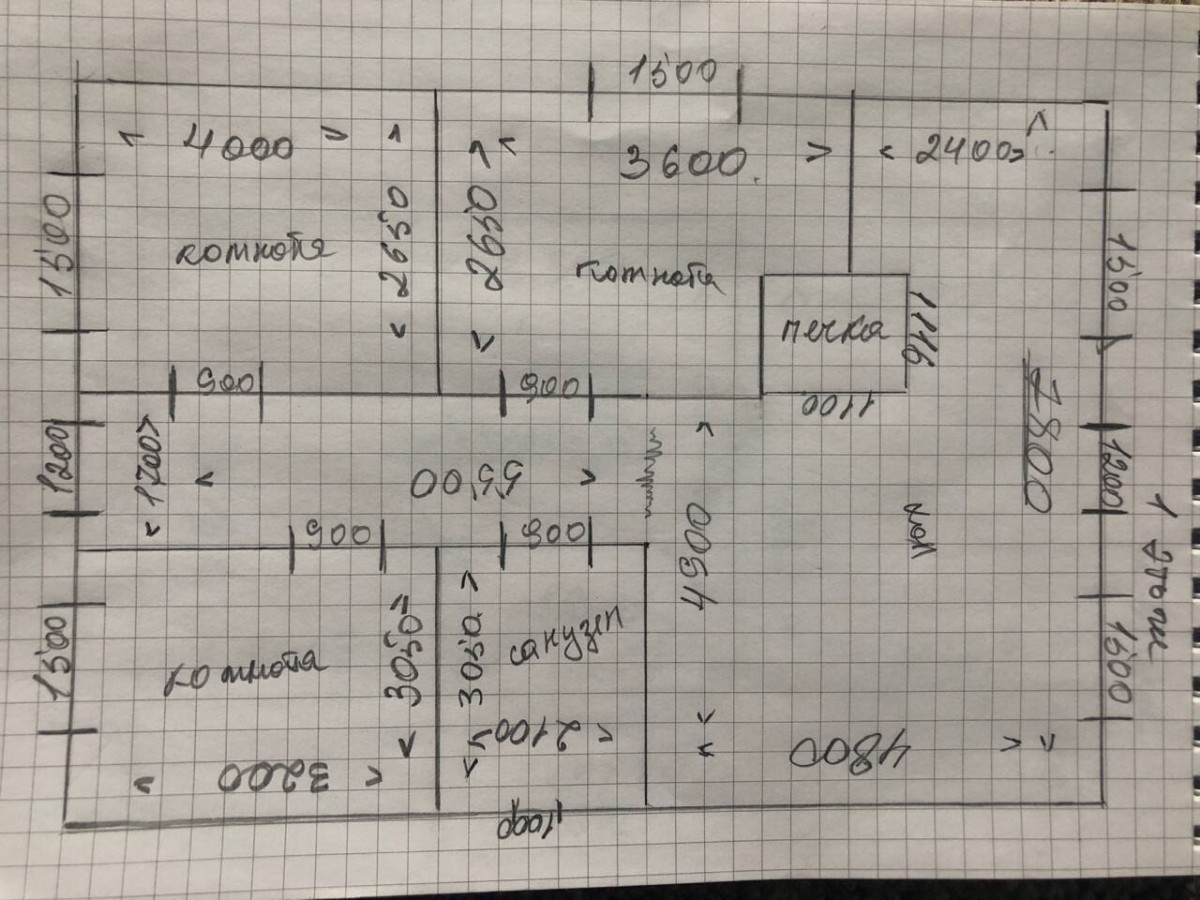 1500
4000
3600
2400
2650
2650
1500
комната
комната
1500
печка
1116
1100
900
900
7800
1200
1700
5500
1200
900
900
4900
1 этаж
3050
3050
санузел
1500
комната
1500
2100
3200
4800